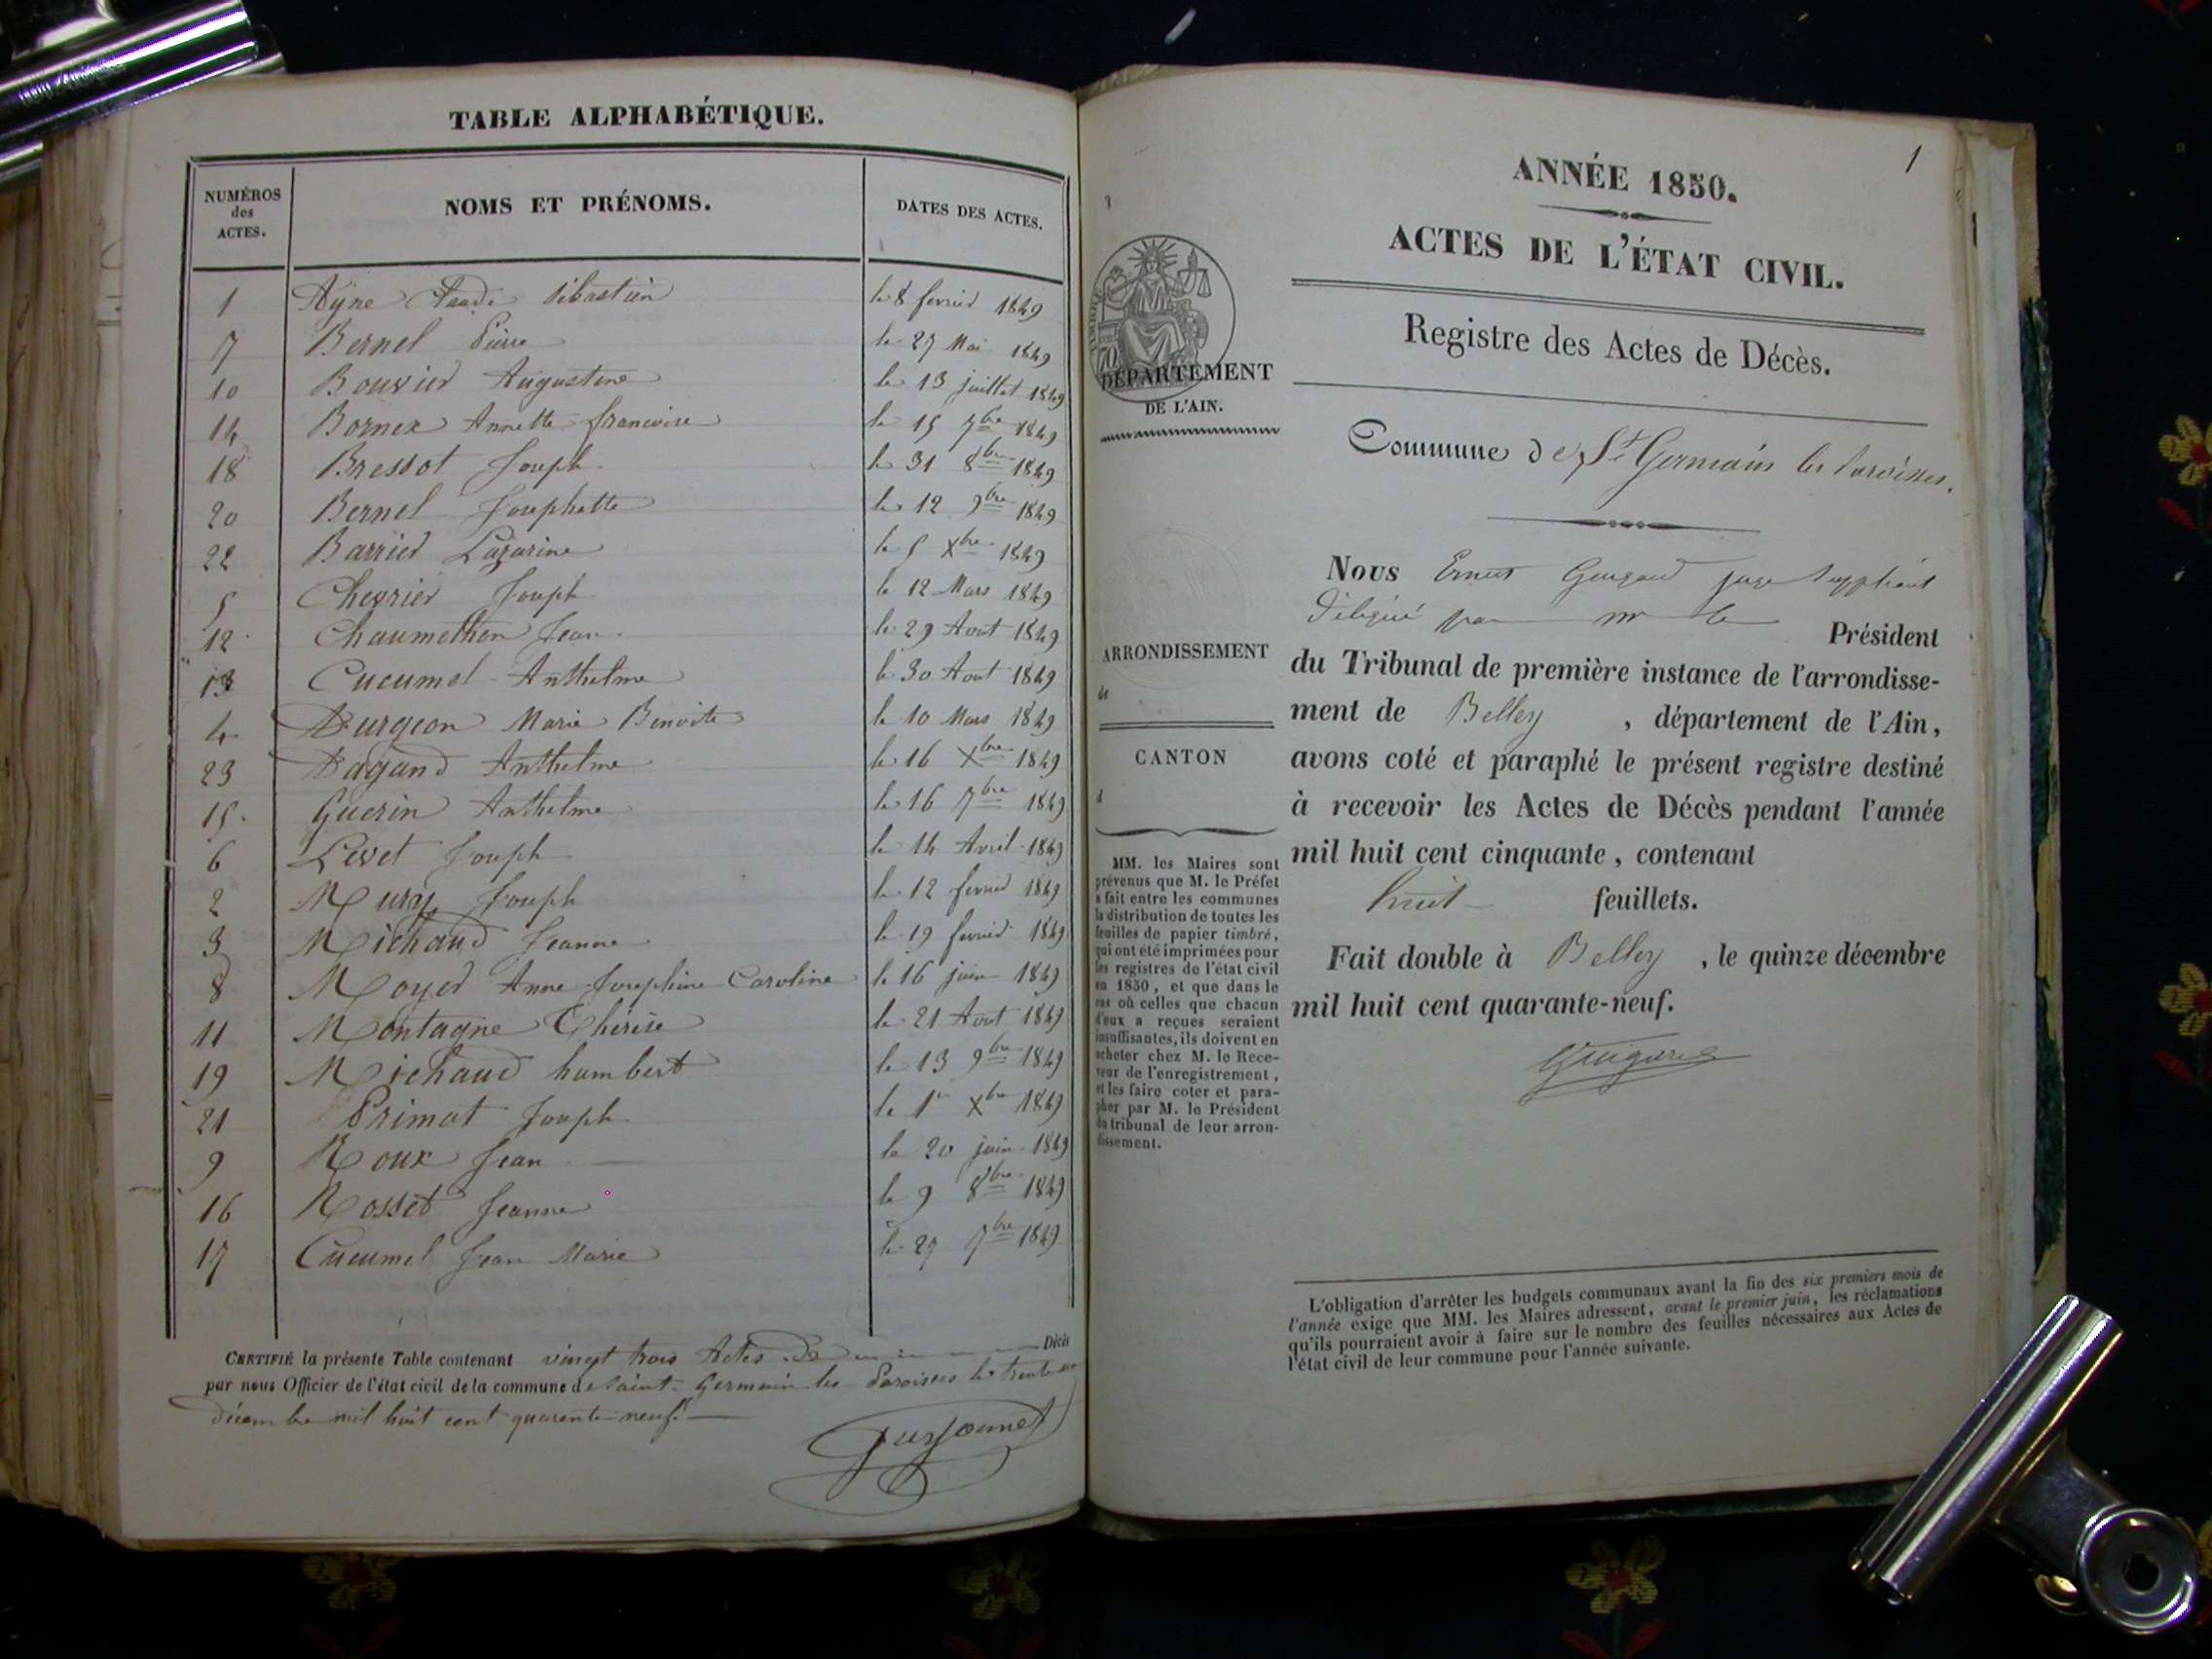 TABLE ALPHABÉTIQUE.
NUMÉROS des ACTES. NOMS ET PRÉNOMS. DATES DES ACTES.
1 Ayne Claude Sébastien le 8 fevrier 1849
7 Bernel Pierre le 27 Mai 1849
10 Bouvier Augustine le 13 juillet 1849
14 Bornex Annette francoise le 15 7bre 1849
18 Bressot Joseph le 31 8bre 1849
20 Bernel Josephette le 12 9bre 1849
22 Barrier Lazarine le 5 Xbre 1849
5 Chevrier Joseph le 12 Mars 1849
12 Chaumethon Jean le 29 Aout 1849
13 Cucumel Anthelme le 30 Aout 1849
4 Durgeon Marie Benoite le 10 Mars 1849
23 Dagand Anthelme le 16 Xbre 1849
15. Guerin Anthelme le 16 7bre 1849
6 Levet Joseph le 14 Avril 1849
2 Mury Joseph le 12 fevrier 1849
3 Michaud Jeanne le 19 fevrier 1849
8 Moyer Anne Josephine Caroline le 16 juin 1849
11 Montagne Thérèse le 21 Aout 1849
19 Michaud humbert le 13 9bre 1849
21 Primat Joseph le 1er Xbre 1849
9 Roux Jean le 20 juin 1849
16 Rosset Jeanne le 9 8bre 1849
17 Cucumel Jean Marie le 27 7bre 1849
CERTIFIÉ la présente Table contenant vingt trois Actes de Décès
par nous Officier de l'état civil de la commune de Saint Germain les Paroisses le trente un
décembre mil huit cent quarante-neuf.
1
ANNÉE 1850.
ACTES DE L'ÉTAT CIVIL.
Registre des Actes de Décès.
70
DÉPARTEMENT
DE L'AIN.
Commune de St Germain les Paroisses.
Nous Ernest Guigard juge suppléant
délégué par mr le Président
ARRONDISSEMENT
de
du Tribunal de première instance de l'arrondisse-
ment de Belley, département de l'Ain,
CANTON
d
avons coté et paraphé le présent registre destiné
à recevoir les Actes de Décès pendant l'année
mil huit cent cinquante, contenant
huit feuillets.
Fait double à Belley, le quinze décembre
mil huit cent quarante-neuf.
Guigard
MM. les Maires sont
prévenus que M. le Préfet
a fait entre les communes
la distribution de toutes les
feuilles de papier timbré,
qui ont été imprimées pour
les registres de l'état civil
en 1850, et que dans le
cas où celles que chacun
d'eux a reçues seraient
insuffisantes, ils doivent en
acheter chez M. le Rece-
veur de l'enregistrement,
et les faire coter et para-
pher par M. le Président
du tribunal de leur arron-
dissement.
L'obligation d'arrêter les budgets communaux avant la fin des six premiers mois de
l'année exige que MM. les Maires adressent, avant le premier juin, les réclamations
qu'ils pourraient avoir à faire sur le nombre des feuilles nécessaires aux Actes de
l'état civil de leur commune pour l'année suivante.